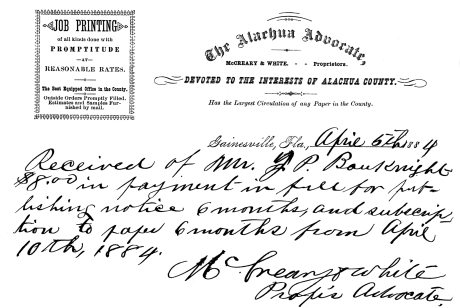 JOB PRINTING
of all kinds done with
PROMPTITUDE
—AT—
REASONABLE RATES.
The Best Equipped Office in the County.
Outside Orders Promptly Filled.
Estimates and Samples Fur-
nished by mail.
The Alachua Advocate,
McCREARY & WHITE. - - Proprietors.
DEVOTED TO THE INTERESTS OF ALACHUA COUNTY.
Has the Largest Circulation of any Paper in the County.
Gainesville, Fla., April 5th 1884
Received of Mr. J. P. Bauknight
$8.00 in payment in full for pub-
lishing notice 6 months, and subscrip-
tion to paper 6 months from April
10th, 1884.
McCreary & White
Prop's Advocate.